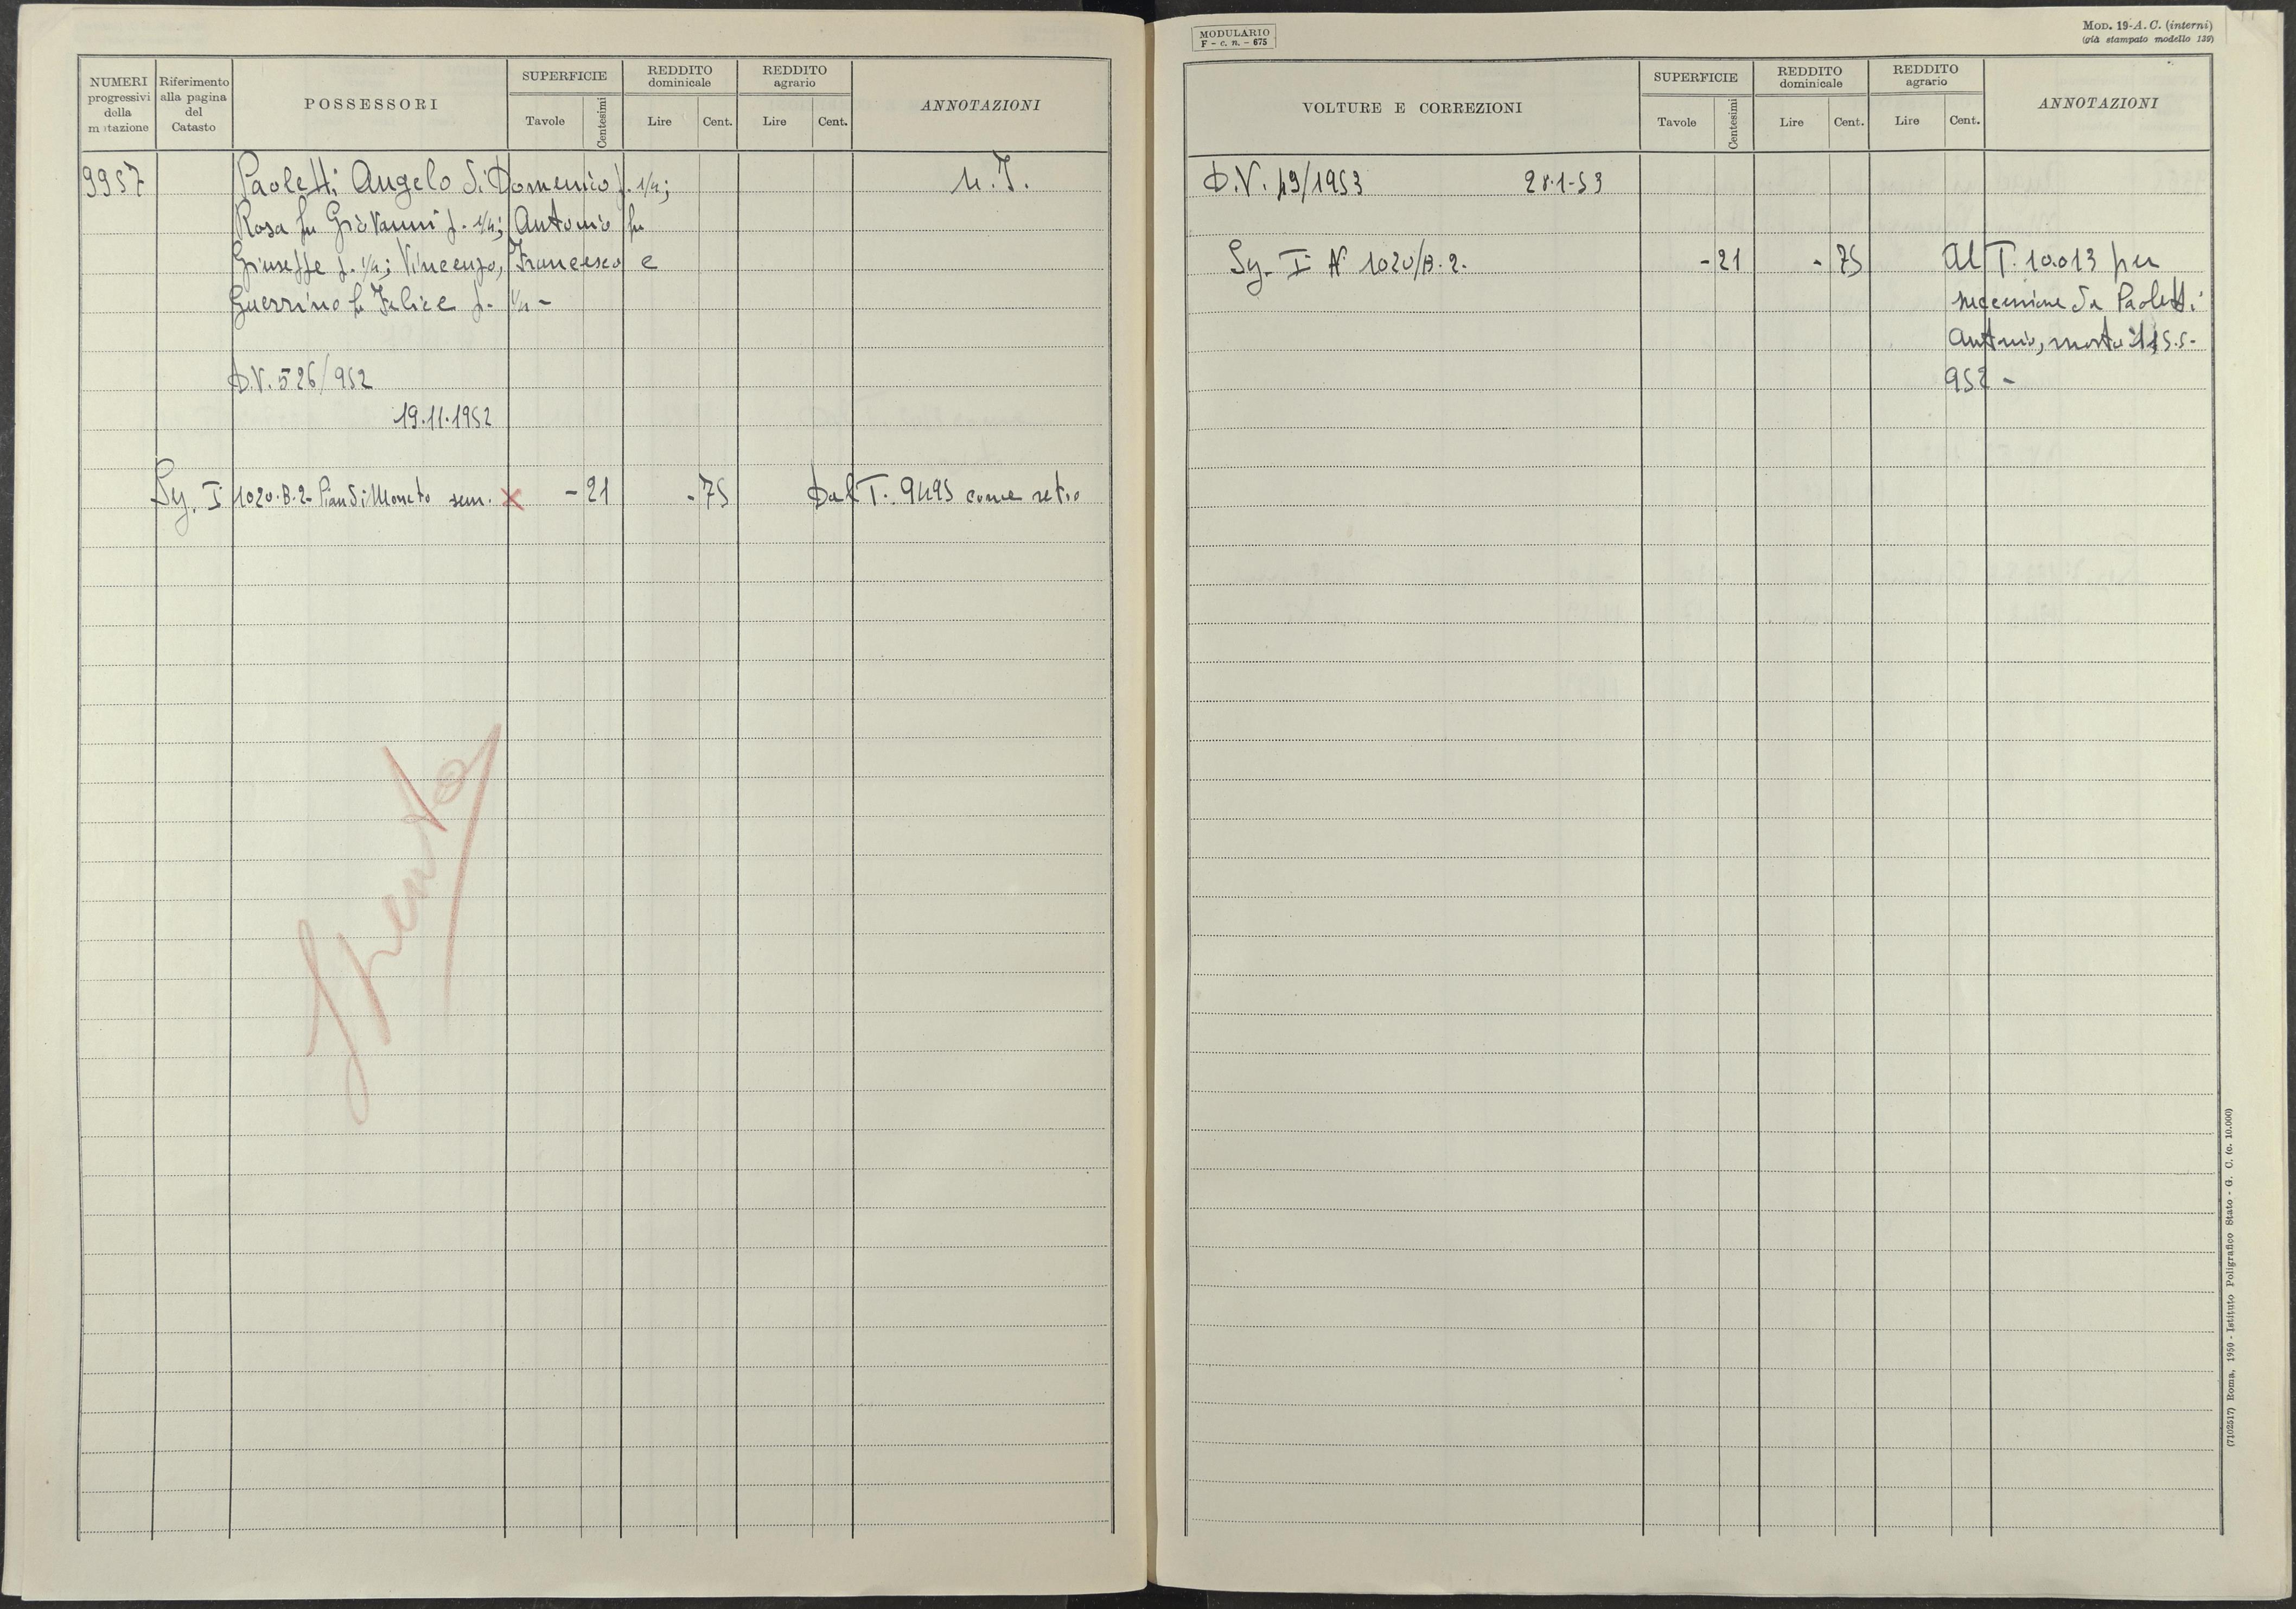 NUMERI progressivi della mutazione
Riferimento alla pagina del Catasto
POSSESSORI
SUPERFICIE
Tavole
Centesimi
REDDITO dominicale
Lire
Cent.
REDDITO agrario
Lire
Cent.
ANNOTAZIONI
9957
Paoletti Angelo di Domenico p. 1/4;
U. I.
Rosa fu Giovanni p. 1/4; Antonio fu
Giuseppe p. 1/4; Vincenzo, Francesco e
Guerrino fu Felice p. 1/4 -
D.V. 526/952
19.11.1952
Sez. I 1020.B.2- Pian di Moneto sem. x -21 -75 Dal T. 9495 come retro
Spento
MODULARIO
F - c. n. - 675
MOD. 19-A. C. (interni)
(già stampato modello 139)
VOLTURE E CORREZIONI
SUPERFICIE
Tavole
Centesimi
REDDITO dominicale
Lire
Cent.
REDDITO agrario
Lire
Cent.
ANNOTAZIONI
D.V. 49/1953 28-1-53
Sez. I N° 1020/B.2. -21 -75 Al T. 10.013 per
successione da Paoletti
Antonio, morto il 15.5.
952 -
(7102517) Roma, 1950 - Istituto Poligrafico Stato - G. C. (c. 10.000)